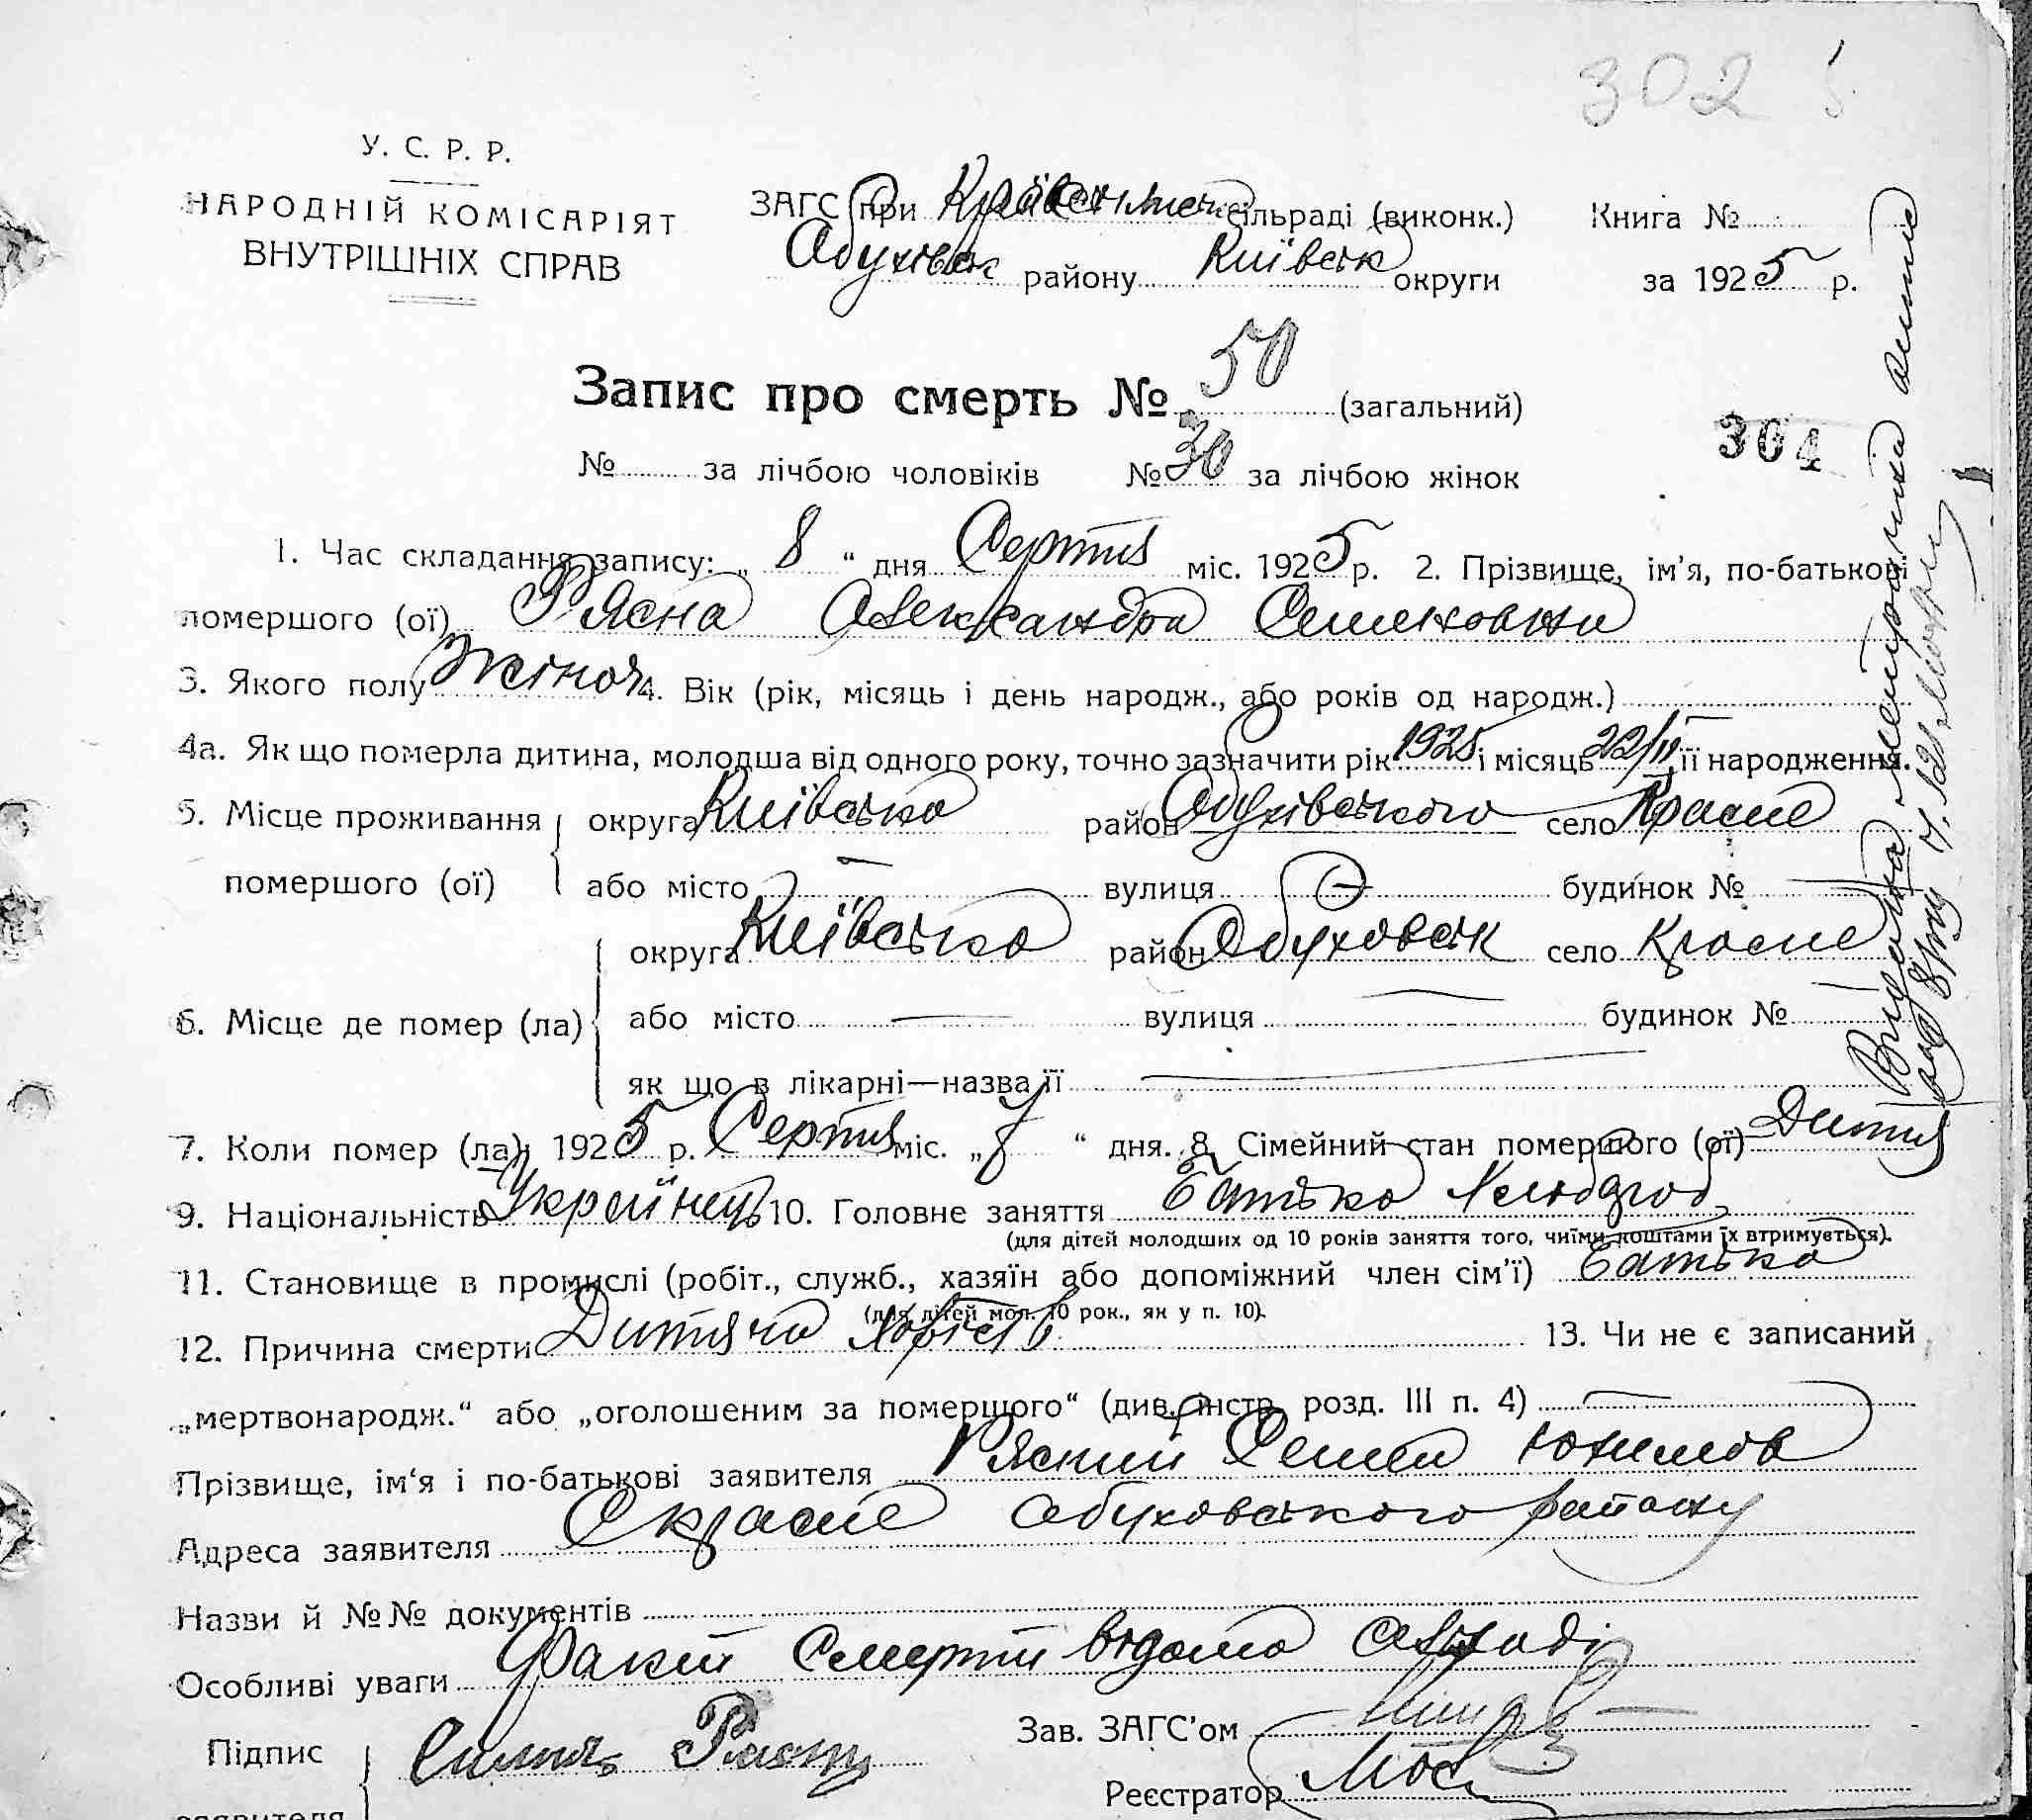 302
У. С. Р. Р.
НАРОДНІЙ КОМІСАРІЯТ
ВНУТРІШНІХ СПРАВ
ЗАГС при сільраді (виконк.) Книга №
Обухівськ району Київськ округи за 1925 р.
Запис про смерть № 50 (загальний)
№ за лічбою чоловіків № 30 за лічбою жінок
304
1. Час складання запису: „ 8 “ дня Серпня міс. 1925 р. 2. Прізвище, ім’я, по-батькові
помершого (ої) Рясна Олександра Семеновна
3. Якого полу Жіноч 4. Вік (рік, місяць і день народж., або років од народж.)
4а. Як що померла дитина, молодша від одного року, точно зазначити рік 1925 і місяць 22/ її народження.
5. Місце проживання округа Київська район Обухівського село Красне
помершого (ої) або місто — вулиця будинок № —
округа Київська район Обуховськ село Красне
6. Місце де помер (ла) або місто — вулиця — будинок № —
як що в лікарні—назва її —
7. Коли помер (ла): 1925 р. Серпня міс. „ 8 “ дня. 8. Сімейний стан помершого (ої) Дитя
9. Національність Українец 10. Головне заняття Батько Хлібороб
(для дітей молодших од 10 років заняття того, чиїми коштами їх втримується).
11. Становище в промислі (робіт., служб., хазяїн або допоміжний член сім’ї) Батько
(для дітей мол. 10 рок., як у п. 10).
12. Причина смерти Дитяча 13. Чи не є записаний
„мертвонародж.“ або „оголошеним за помершого“ (див. інстр. розд. III п. 4) —
Прізвище, ім‘я і по-батькові заявителя Рясний Семен Юхимов
Адреса заявителя С Красне Обуховського району
Назви й №№ документів
Особливі уваги Факт Смерти відомо
Підпис Рясny
Зав. ЗАГС’ом
Реєстратор
заявителя
Видана метрична